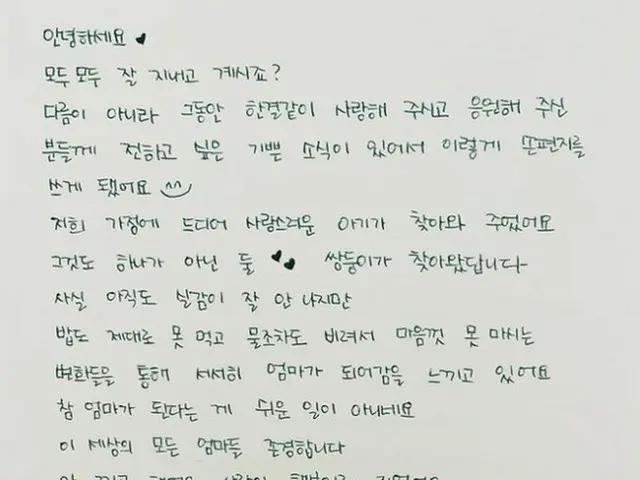 안녕하세요 ♥
모두모두 잘 지내고 계시죠?
다름이 아니라 그동안 한결같이 사랑해 주시고 응원해 주신
분들께 전하고 싶은 기쁜 소식이 있어서 이렇게 손편지를
쓰게 됐어요 ^^
저희 가정에 드디어 사랑스러운 아기가 찾아와 주었어요
그것도 하나가 아닌 둘 ♥♥ 쌍둥이가 찾아왔답니다
사실 아직도 실감이 잘 안 나지만
밥도 제대로 못 먹고 물조차도 비려서 마음껏 못 마시는
변화들을 통해 서서히 엄마가 되어감을 느끼고 있어요
참 엄마가 된다는 게 쉬운 일이 아니네요
이 세상의 모든 엄마들 존경합니다